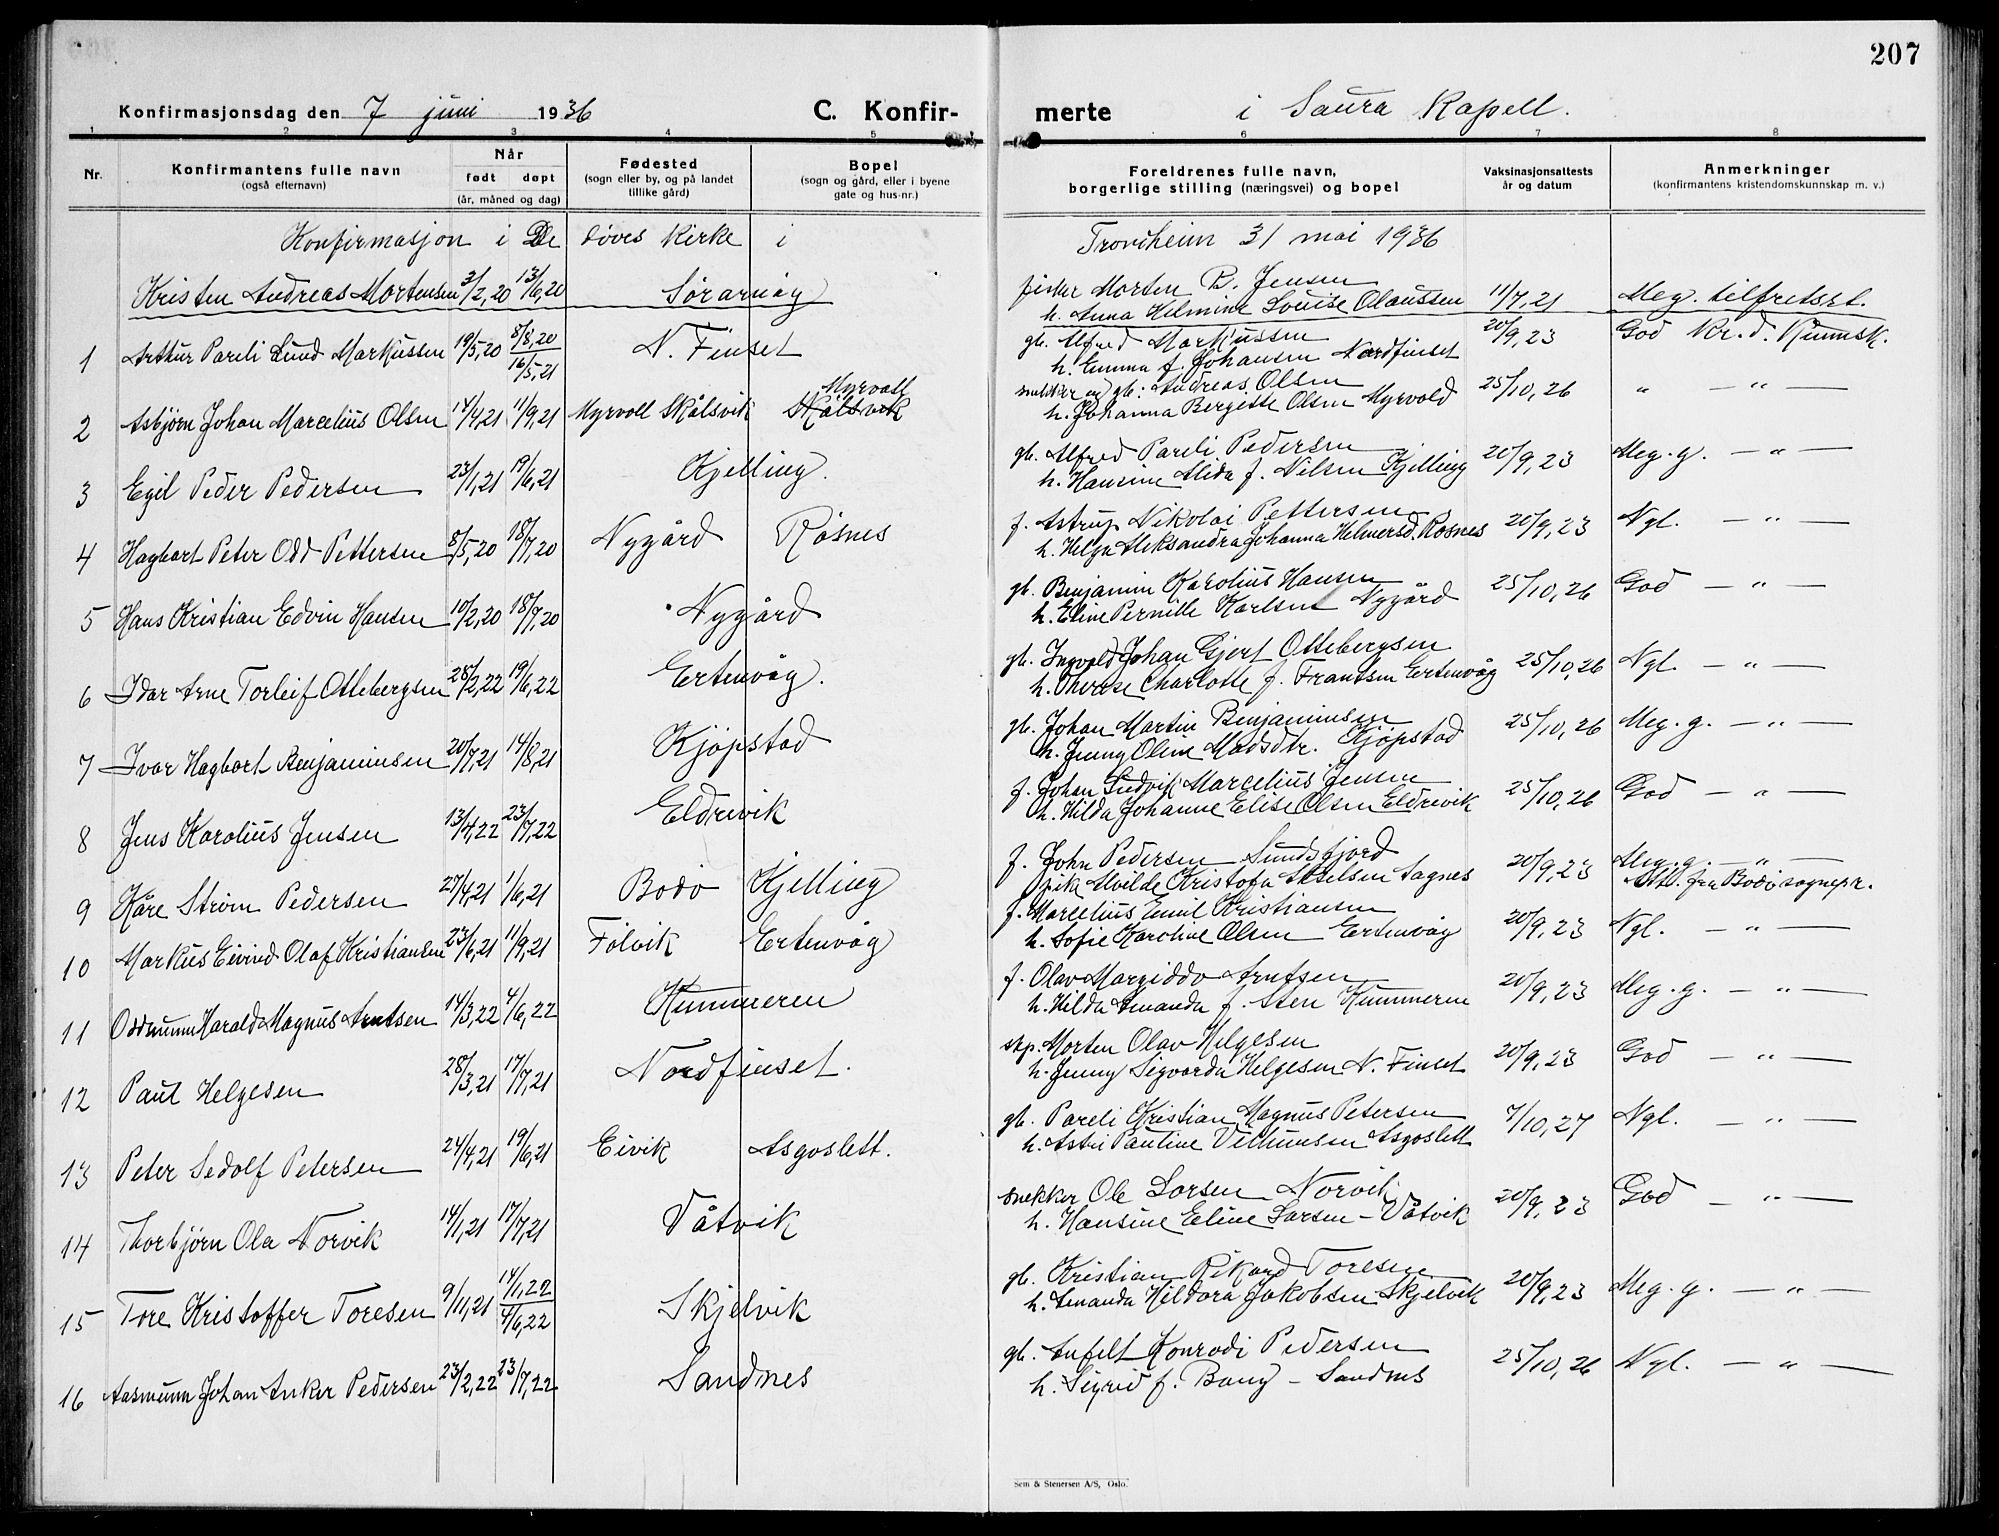 207
Konfirmasjonsdag den 7 juni 1936 C. Konfir- merte i Saura Kapell.
1 2 3 4 5 6 7 8
Nr. Konfirmantens fulle navn (også efternavn) Når født døpt (år, måned og dag) Fødested (sogn eller by, og på landet tillike gård) Bopel (sogn og gård, eller i byene gate og hus-nr.) Foreldrenes fulle navn, borgerlige stilling (næringsvei) og bopel Vaksinasjonsattests år og datum Anmerkninger (konfirmantens kristendomskunnskap m. v.)
Konfirmasjon i De døves kirke i Trondheim 31 mai 1936
Kristen Andreas Mortensen 3/2,20 13/6,20 Sørarnøy fisker Morten B. Jensen
h. Anna Helmine Lovise Olaussen 11/7,21 Meg. tilfredst.
1 Arthur Pareli Lund Markussen 19/5,20 8/8,20 16/5,21 N. Finset gb. Alfred Markussen
h. Emma f. Johansen Nordfinset 20/9,23 God kr.d. kunnsk.
2 Asbjørn Johan Marcelius Olsen 14/4,21 11/9,21 Myrvoll Skålsvik Myrvoll Skålsvik gb: Andreas Olsen
h. Johanna Bergitte Olsen Myrvold 25/10,26 " — " —
3 Egil Peder Pedersen 23/1,21 19/6,21 Kjelling. gb. Alfred Pareli Pedersen
h. Hansine Alida f. Nilsen Kjelling 20/9,23 Meg. g. — " —
4 Hagbart Peter Odd Pettersen 8/5,20 18/7,20 Nygård Røsnes f. Astrup Nikolai Pettersen
h. Helga Aleksandra Johanna Helmersd. Røsnes 20/9,23 Ngl. — " —
5 Hans Kristian Edvin Hansen 10/2,20 18/7,20 Nygård gb. Benjamin Karolius Hansen
h. Eline Pernille Karlsen Nygård 25/10,26 God — " —
6 Idar Arne Torleif Ottebergsen 28/2,22 19/6,22 Ertenvåg. gb. Ingvald Johan Gjert Ottebergsen
h. Therese Charlotte f. Frantsen Ertenvåg 25/10,26 Ngl. — " —
7 Ivar Hagbart Benjaminsen 20/7,21 14/8,21 Kjøpstad gb. Johan Martin Benjaminsen
h. Jenny Oline Madsdtr. Kjøpstad 25/10,26 Meg. g. — " —
8 Jens Karolius Jensen 13/4,22 23/7,22 Eldrevik f. Johan Ludvik Marcelius Jensen
h. Hilda Johanne Elise Olsen Eldrevik 25/10,26 God — " —
9 Kåre Strøm Pedersen 27/4,21 1/6,21 Bodø Kjelling f. John Pedersen Sundsfjord
pik Alvilde Kristofa Akselsen Sagnes 20/9,23 Meg. g. — " —
Att. fra Bodø sognepr.
10 Markus Eivind Olaf Kristiansen 23/6,21 11/9,21 Følvik Ertenvåg f. Marcelius Emil Kristiansen
h. Sofie Karoline Olsen Ertenvåg 20/9,23 Ngl. — " —
11 Oddmunn Harald Magnus Arntsen 14/3,22 4/6,22 Kunneren f. Olav Margiddo Arntsen
h. Hilda Amanda f. Sten Kunneren 20/9,23 Meg. g. — " —
12 Paul Helgesen 28/3,21 17/7,21 Nordfinset. skp. Morten Olav Helgesen
h. Jenny Sigvarda Helgesen N. Finset 20/9,23 God — " —
13 Peter Sedolf Petersen 24/4,21 19/6,21 Eivik Asgoslett. gb. Pareli Kristian Magnus Petersen
h. Astri Pauline Vilhumsen Asgoslett 7/10,27 Ngl. — " —
14 Thorbjørn Ola Norvik 14/1,21 17/7,21 Våtvik snekker Ole Larsen Norvik
h. Hansine Eline Larsen - Våtvik 20/9,23 God — " —
15 Tore Kristoffer Toresen 9/11,21 14/1,22 4/6,22 Skjelvik gb. Kristian Rikard Toresen
h. Amanda Hildora Jakobsen Skjelvik 20/9,23 Meg. g. — " —
16 Aasmunn Johan Anker Pedersen 23/2,22 23/7,22 Sandnes gb. Anfelt Konradi Pedersen
h. Sigrid f. Bang - Sandnes 25/10,26 Ngl. — " —
Sem & Stenersen A/S, Oslo.